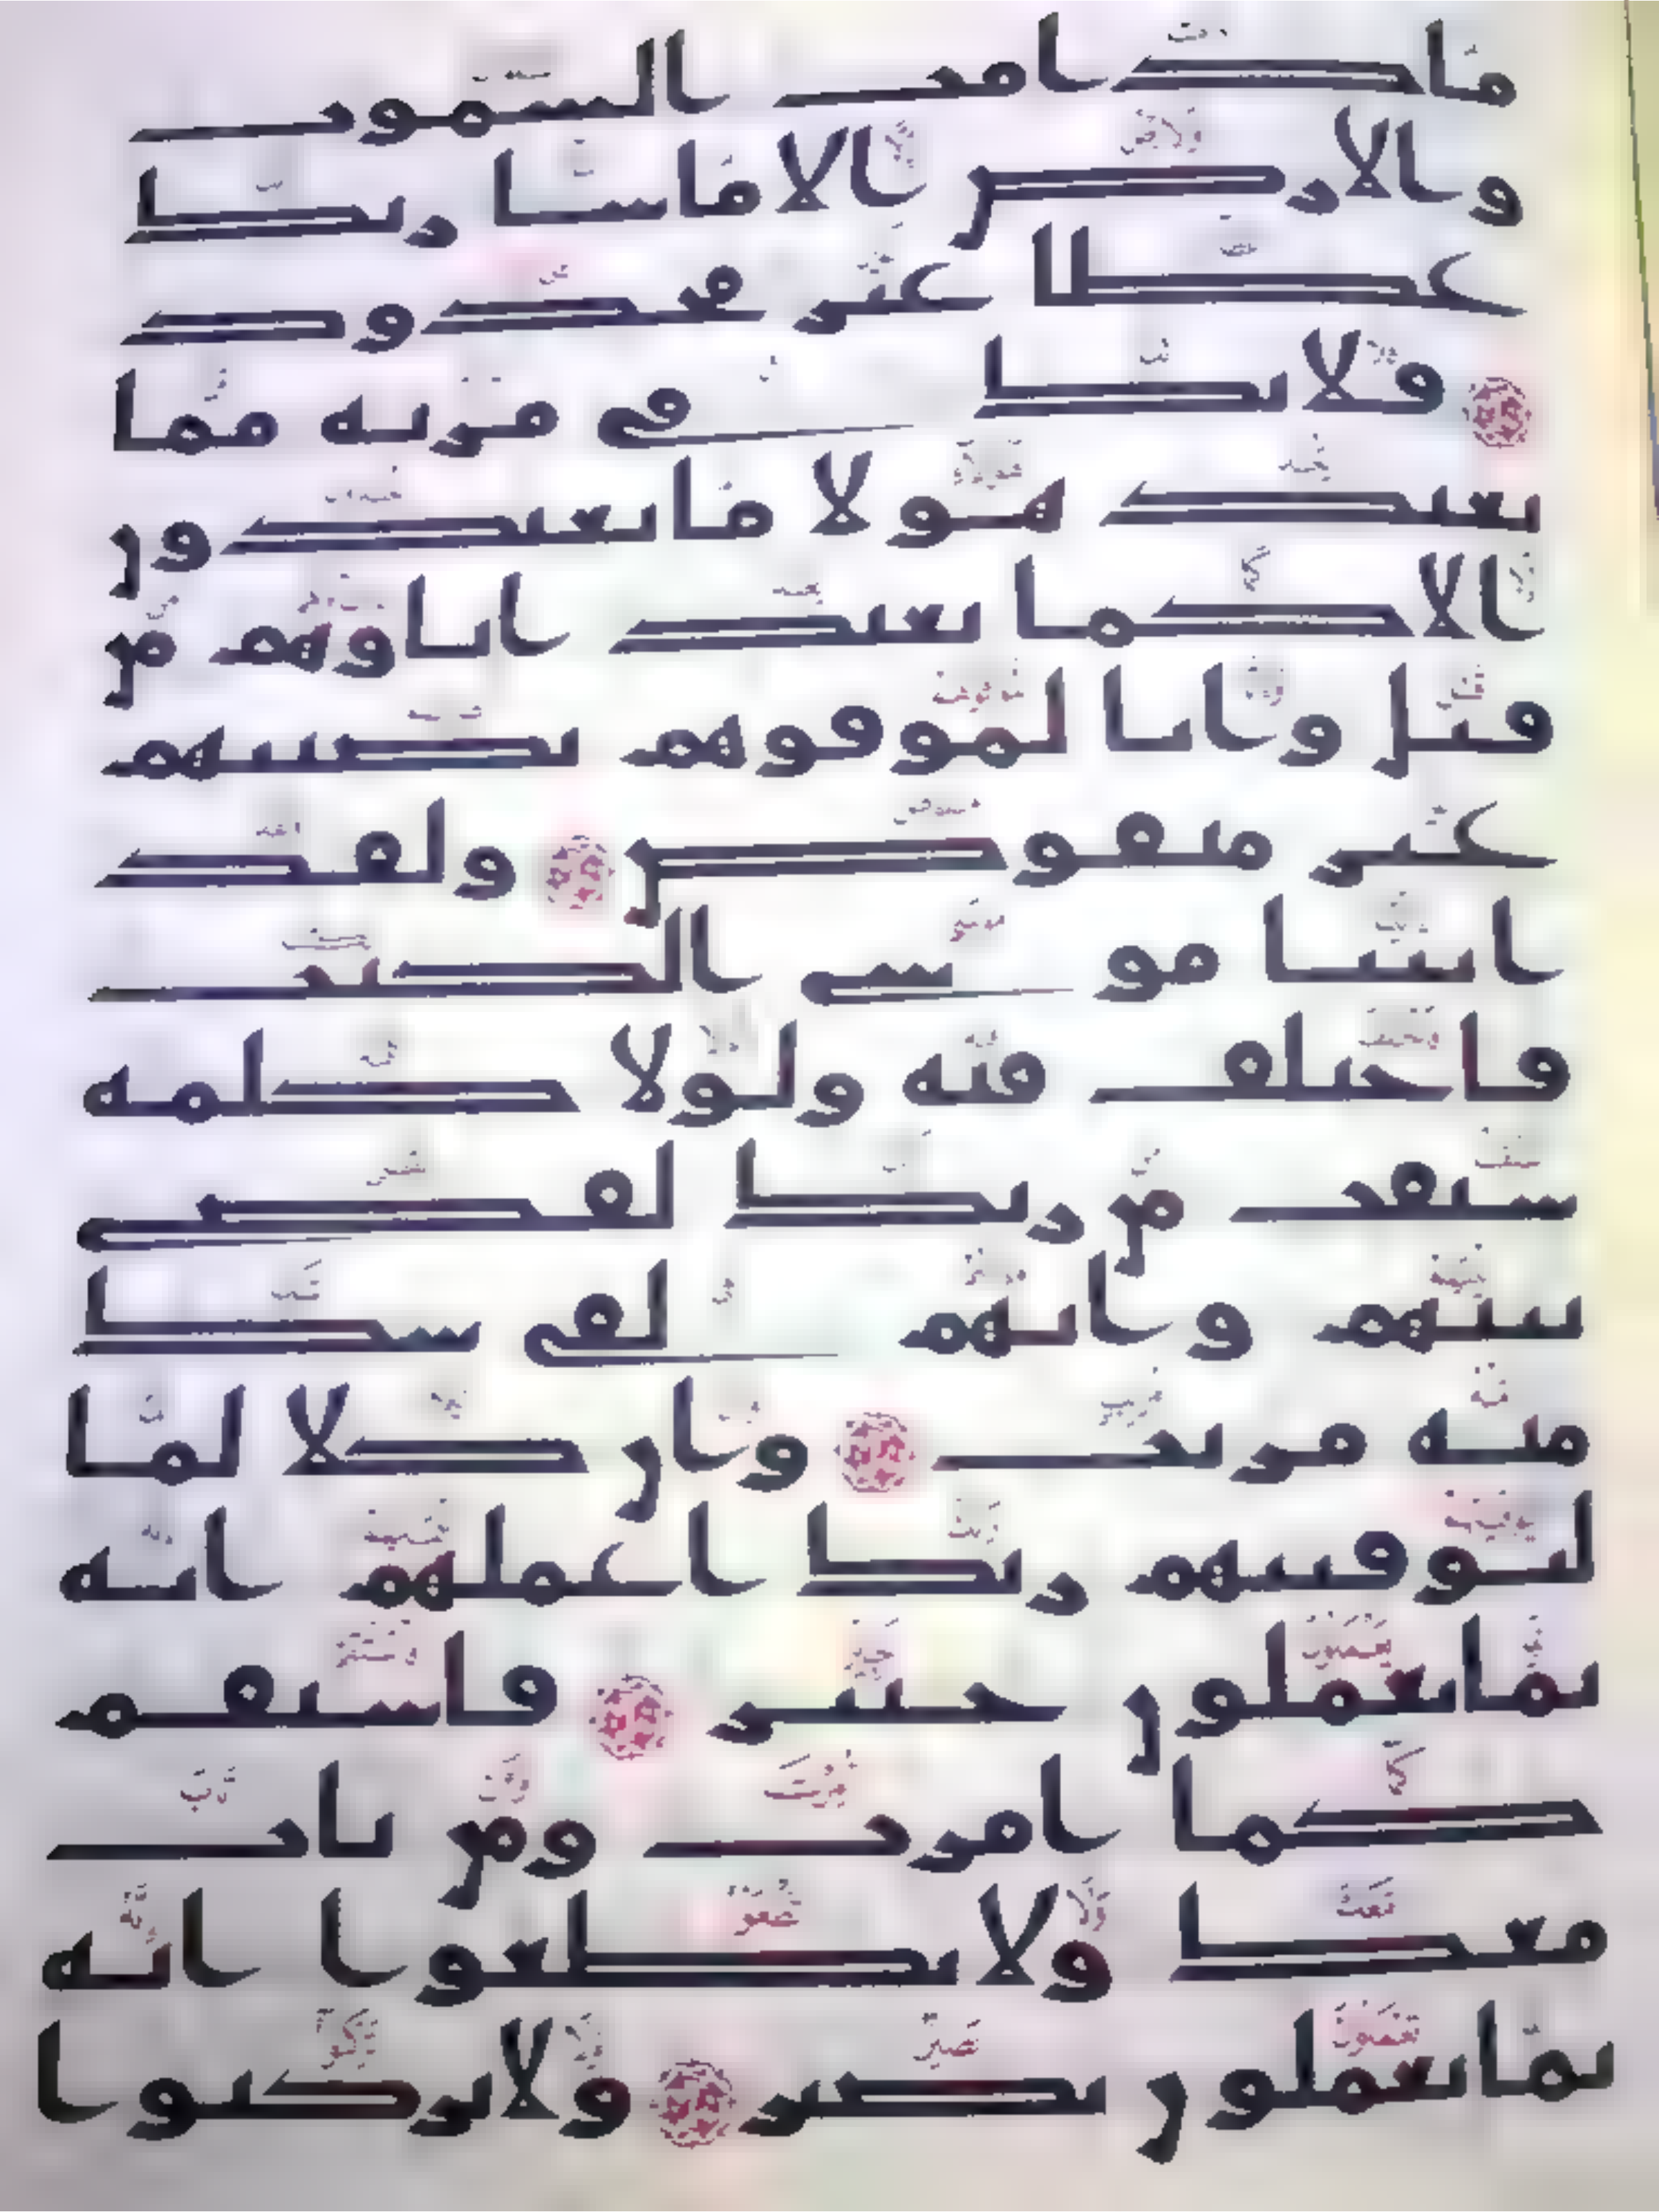 ما دامت السموت
والارض الا ما شا ربك
عطا غير مجذوذ
فلا تك في مرية مما
يعبد هولا ما يعبدون
الا كما يعبد اباوهم من
قبل وانا لموفوهم نصيبهم
غير منقوص ولقد
اتينا موسى الكتب
فاختلف فيه ولولا كلمة
سبقت من ربك لقضي
بينهم وانهم لفي شك
منه مريب وان كلا لما
ليوفينهم ربك اعملهم انه
بما يعملون خبير فاستقم
كما امرت ومن تاب
معك ولا تطغوا انه
بما تعملون بصير ولا تركنوا